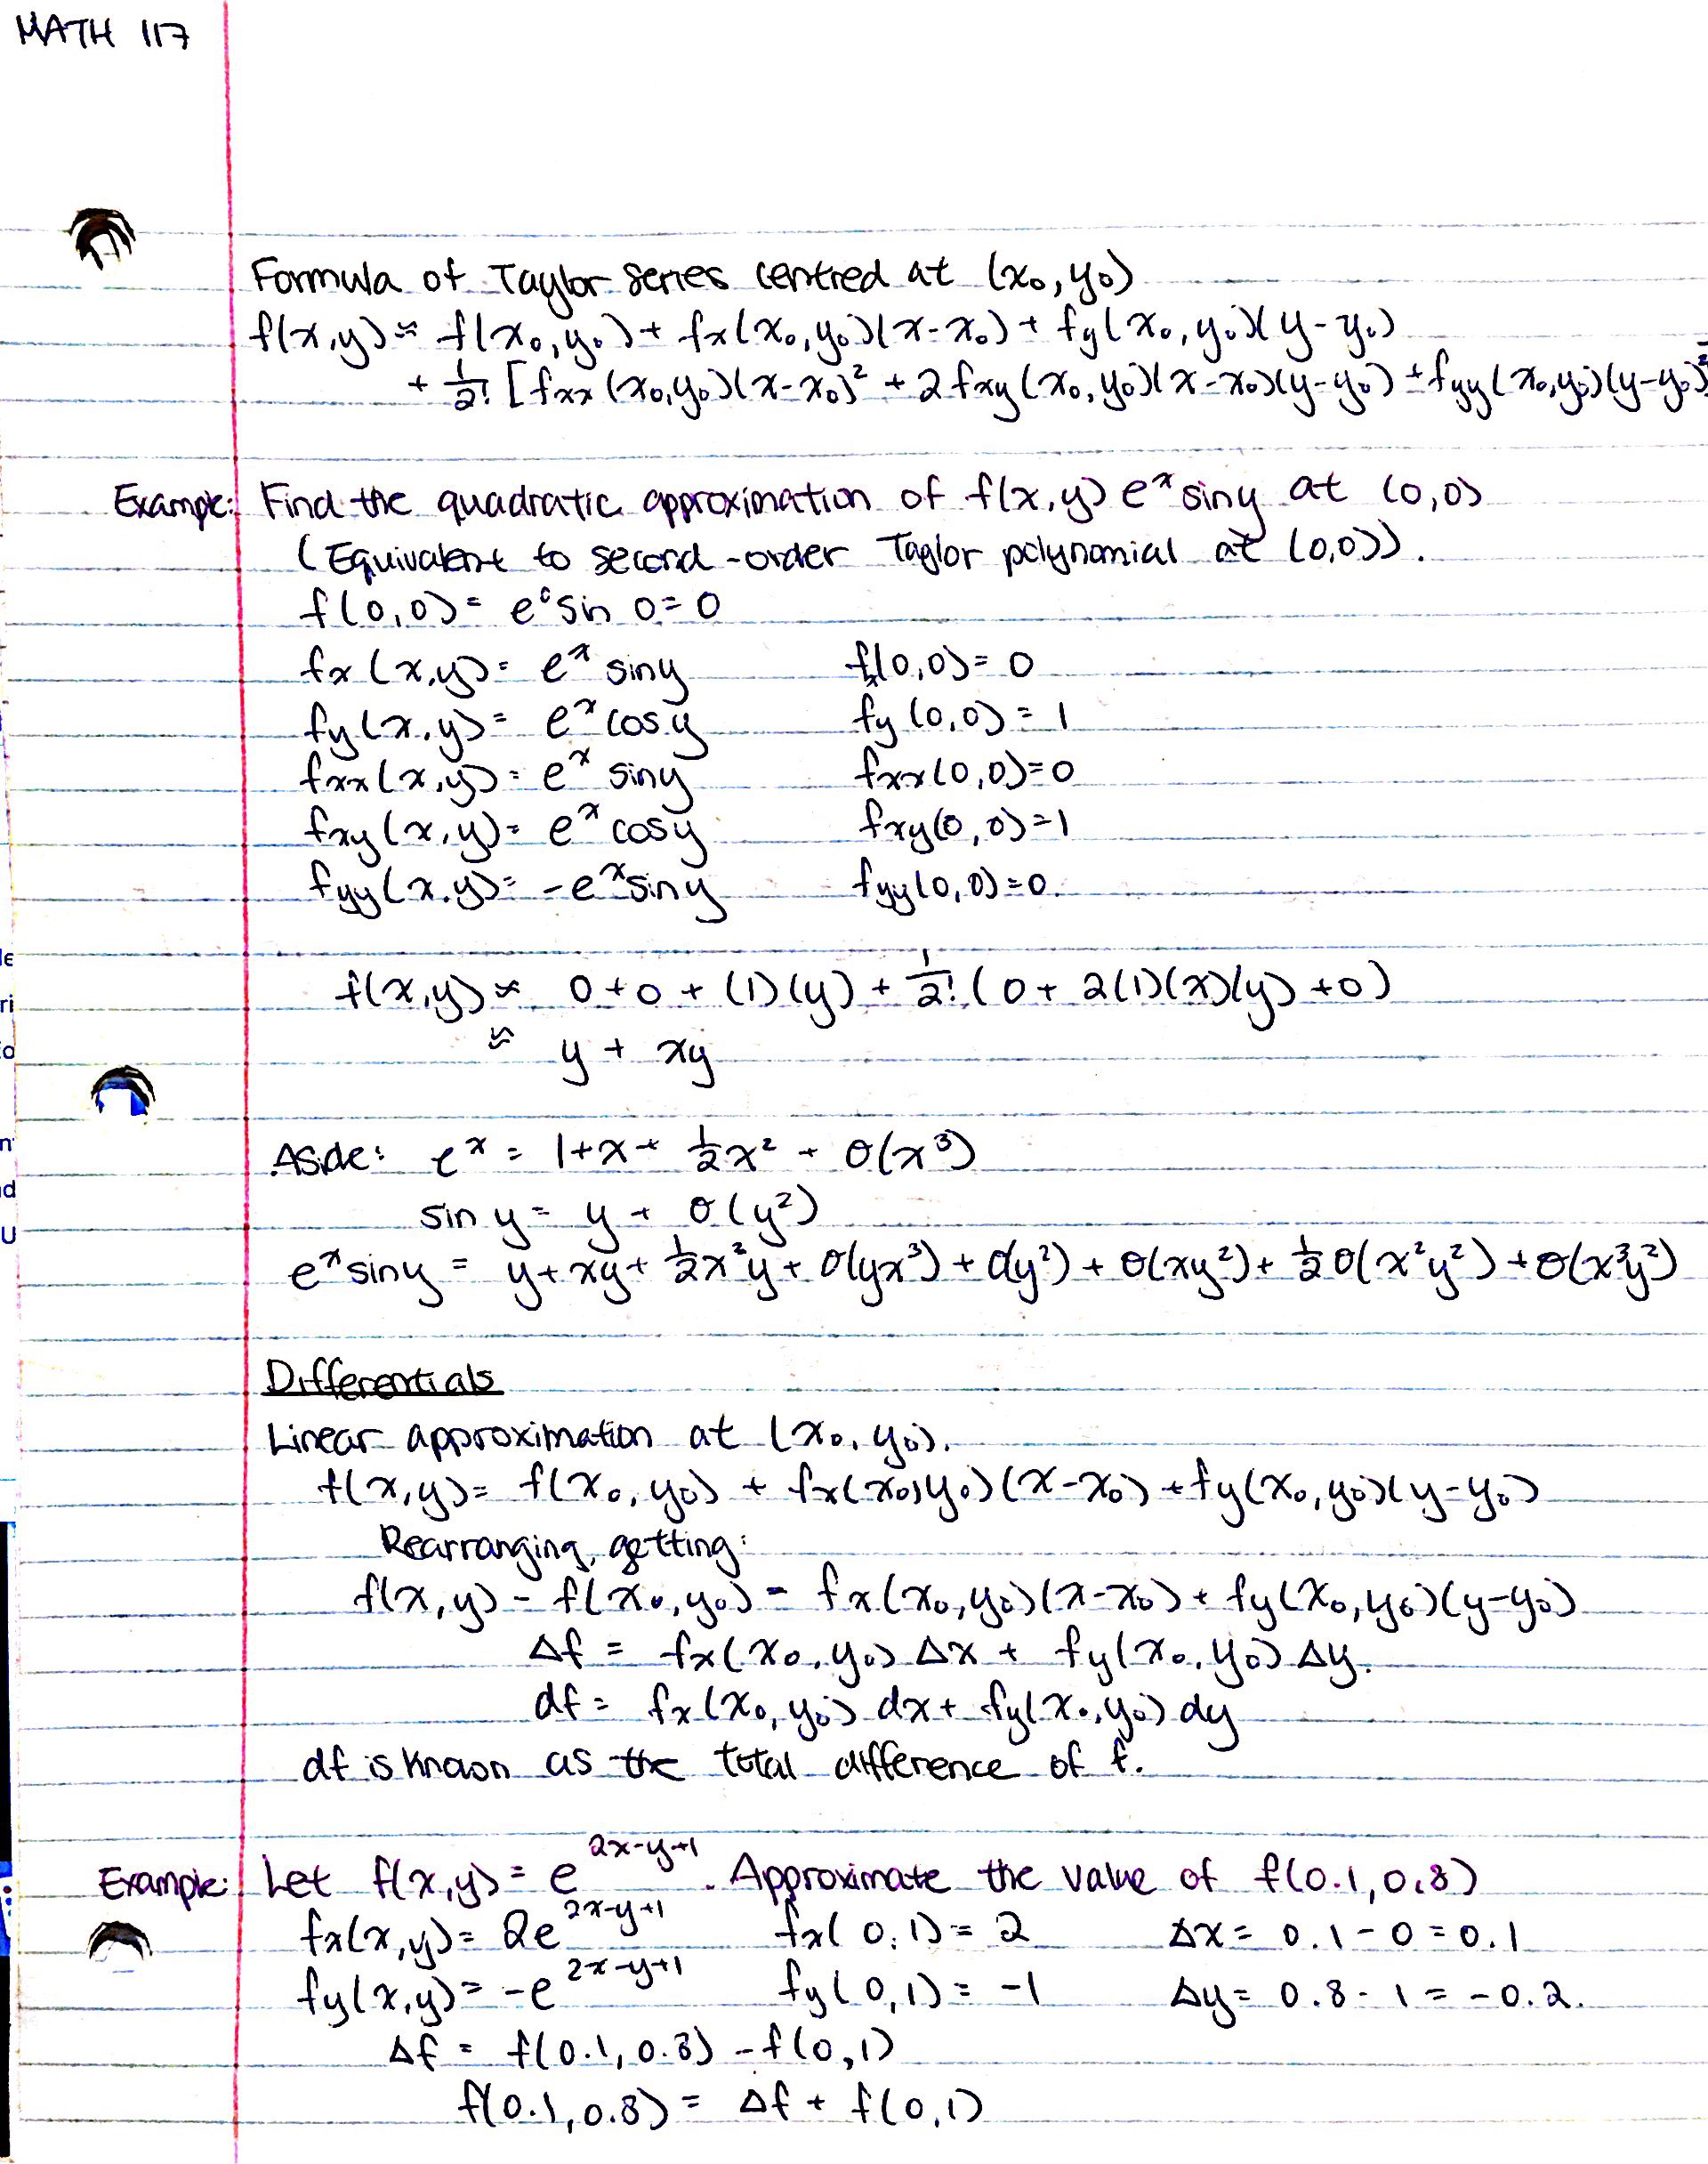 MATH 117
Formula of Taylor Series centred at (x₀, y₀)
f(x,y) ≈ f(x₀,y₀) + fx(x₀,y₀)(x-x₀) + fy(x₀,y₀)(y-y₀)
+ 1/2! [fxx(x₀,y₀)(x-x₀)² + 2fxy(x₀,y₀)(x-x₀)(y-y₀) + fyy(x₀,y₀)(y-y₀)²
Example: Find the quadratic approximation of f(x,y) eˣ siny at (0,0)
(Equivalent to second-order Taylor polynomial at (0,0)).
f(0,0) = e⁰ sin 0 = 0
fx(x,y) = eˣ siny fx(0,0) = 0
fy(x,y) = eˣ cosy fy(0,0) = 1
fxx(x,y) = eˣ siny fxx(0,0) = 0
fxy(x,y) = eˣ cosy fxy(0,0) = 1
fyy(x,y) = -eˣ siny fyy(0,0) = 0.
f(x,y) ≈ 0 + 0 + (1)(y) + 1/2! (0 + 2(1)(x)(y) + 0)
≈ y + xy
Aside: eˣ = 1 + x + 1/2 x² + O(x³)
sin y = y + O(y²)
eˣ siny = y + xy + 1/2 x²y + O(yx³) + O(y²) + O(xy²) + 1/2 O(x²y²) + O(x³y²)
Differentials
Linear approximation at (x₀, y₀).
f(x,y) = f(x₀,y₀) + fx(x₀,y₀)(x-x₀) + fy(x₀,y₀)(y-y₀)
Rearranging, getting:
f(x,y) - f(x₀,y₀) = fx(x₀,y₀)(x-x₀) + fy(x₀,y₀)(y-y₀)
Δf = fx(x₀,y₀) Δx + fy(x₀,y₀) Δy.
df = fx(x₀,y₀) dx + fy(x₀,y₀) dy
df is known as the total difference of f.
Example: Let f(x,y) = e^(2x-y+1). Approximate the value of f(0.1,0.8)
fx(x,y) = 2e^(2x-y+1) fx(0,1) = 2 Δx = 0.1 - 0 = 0.1
fy(x,y) = -e^(2x-y+1) fy(0,1) = -1 Δy = 0.8 - 1 = -0.2.
Δf = f(0.1,0.8) - f(0,1)
f(0.1,0.8) = Δf + f(0,1)